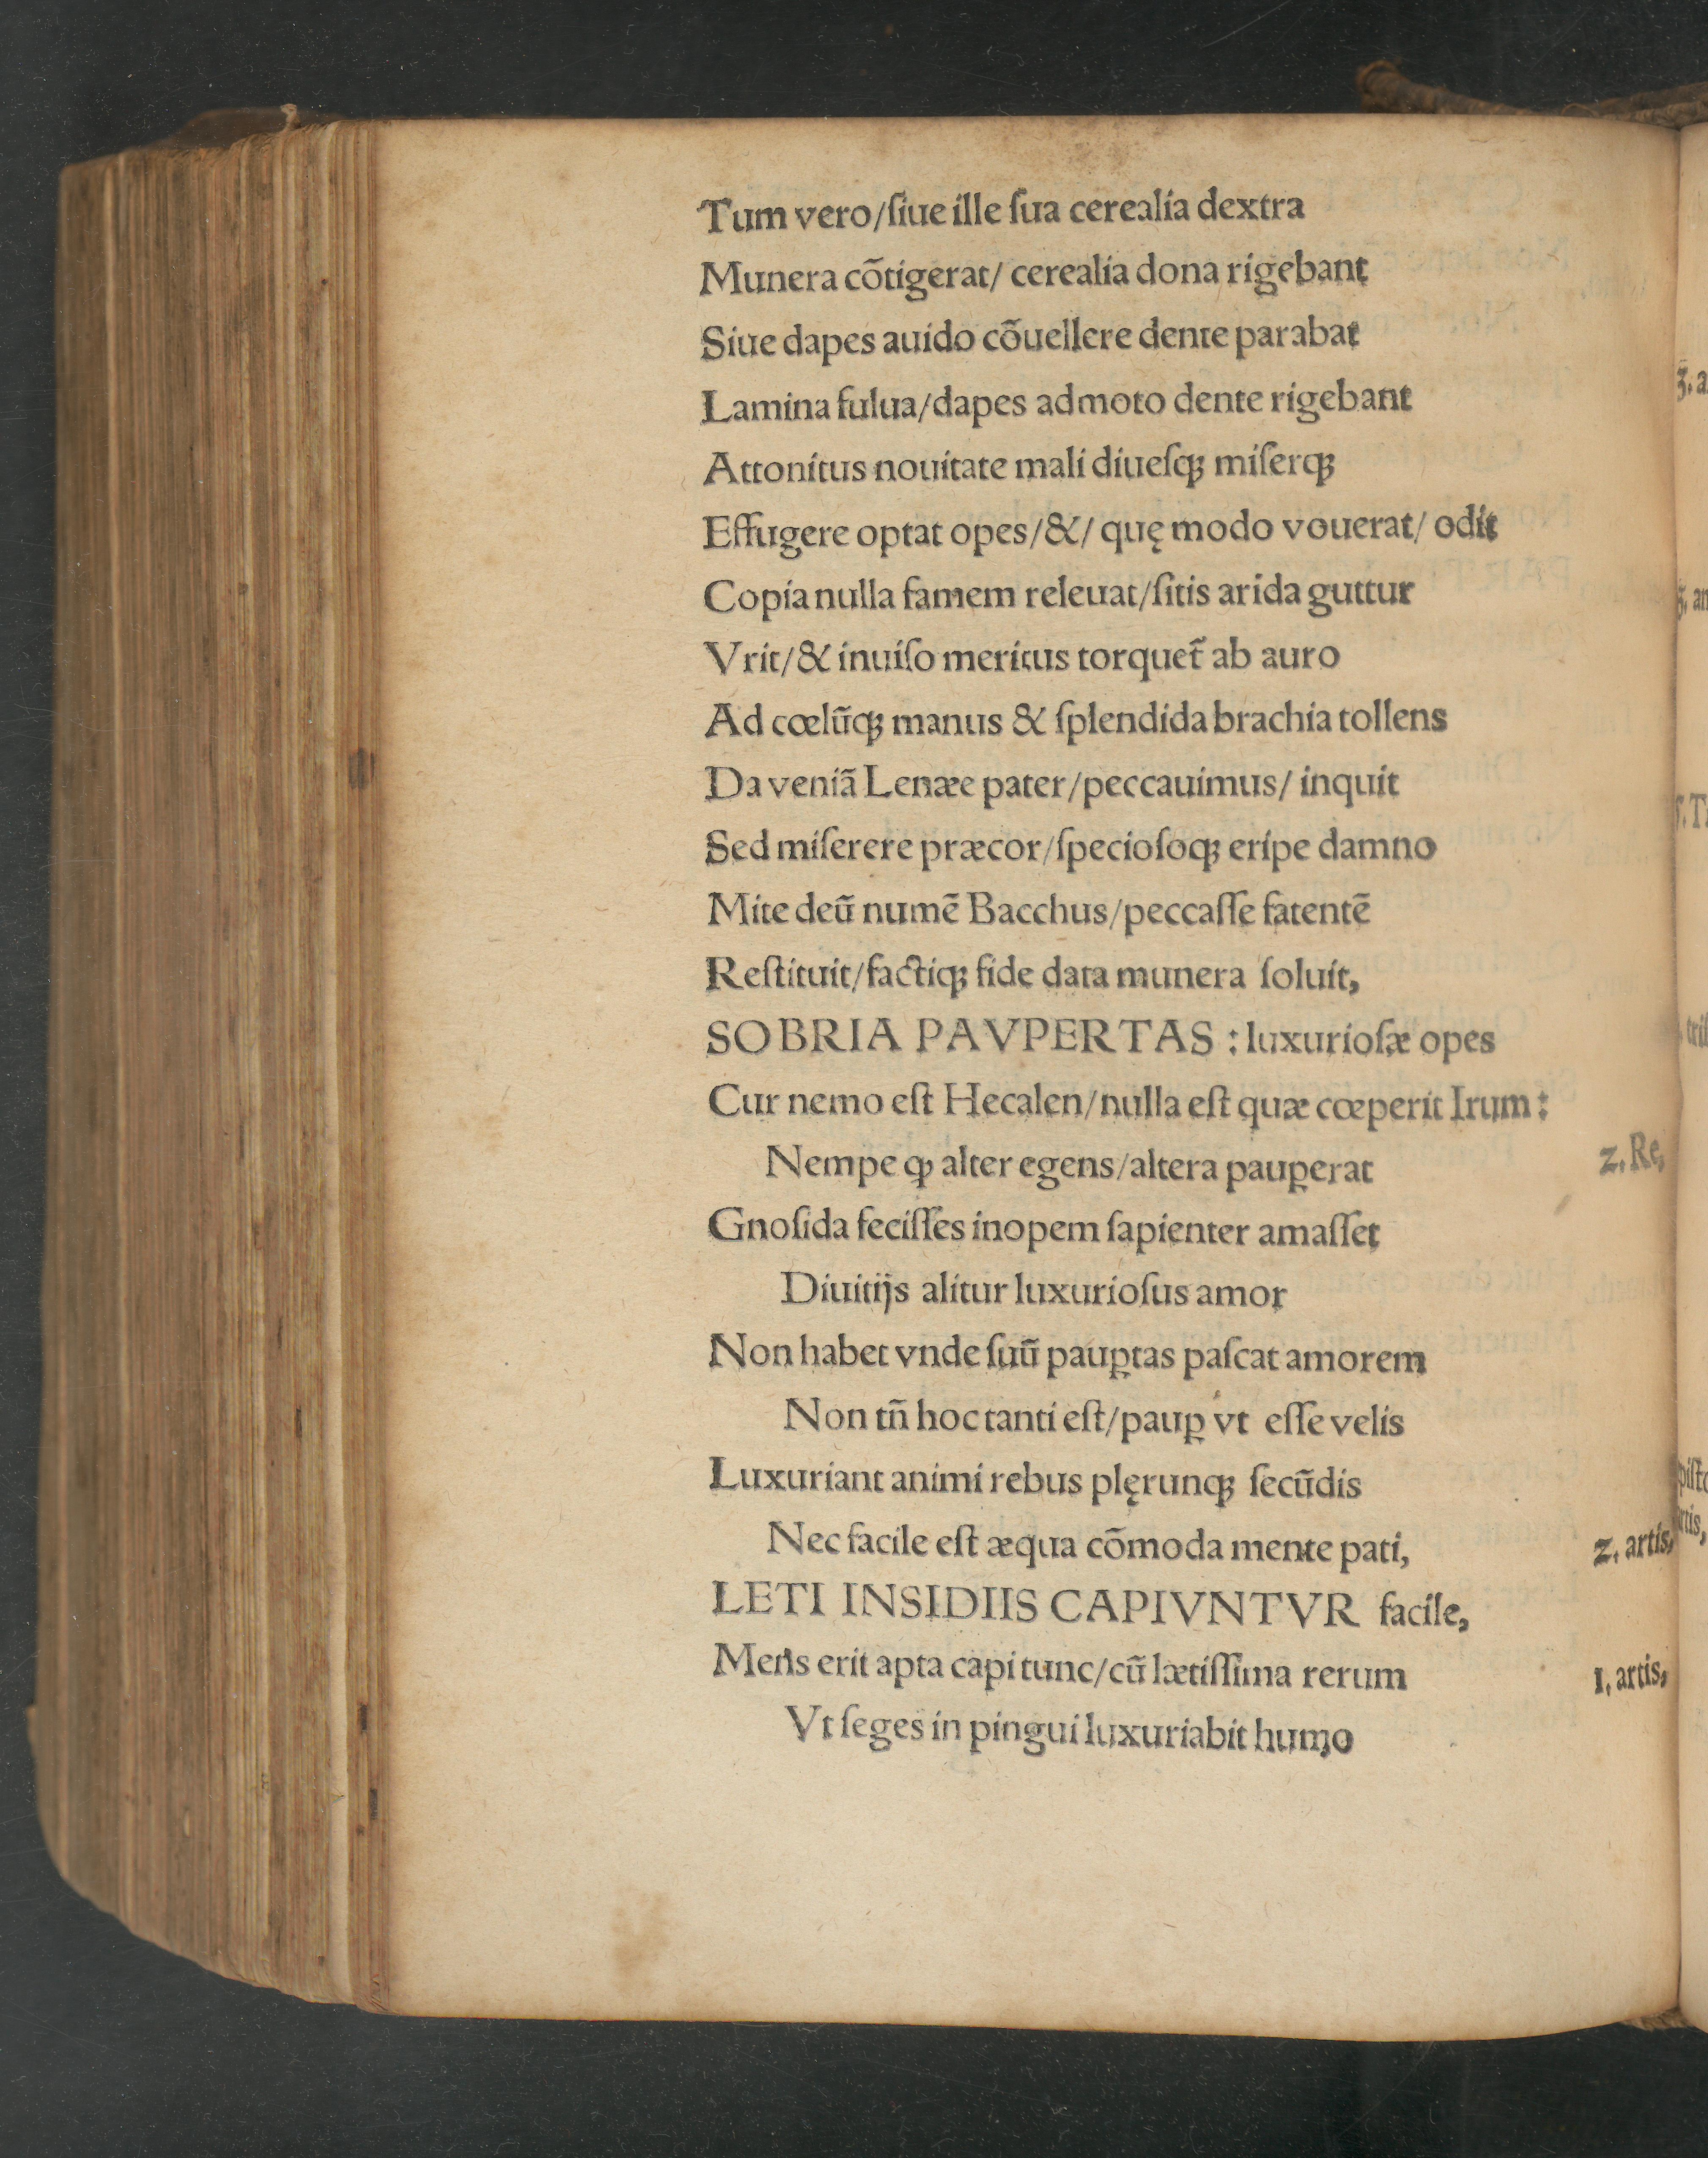 Tum vero/ſiue ille ſua cerealia dextra
Munera cõtigerat/ cerealia dona rigebant
Siue dapes auido cõuellere dente parabat
Lamina fulua/dapes admoto dente rigebant
Attonitus nouitate mali diueſqꝫ miſerqꝫ
Effugere optat opes/&/ quę modo vouerat/ odit
Copia nulla famem releuat/ſitis arida guttur
Vrit/& inuiſo meritus torquet̃ ab auro
Ad cœlũqꝫ manus & ſplendida brachia tollens
Da veniã Lenæe pater/peccauimus/ inquit
Sed miſerere præcor/ſpecioſoqꝫ eripe damno
Mite deũ numẽ Bacchus/peccaſſe fatentẽ
Reſtituit/factiqꝫ fide data munera ſoluit,
SOBRIA PAVPERTAS : luxurioſæ opes
Cur nemo eſt Hecalen/nulla eſt quæ cœperit Irum :
Nempe ꝙ alter egens/altera pauꝑerat
z. Re,
Gnoſida feciſſes inopem ſapienter amaſſet
Diuitijs alitur luxurioſus amor
Non habet vnde ſuũ pauꝑtas paſcat amorem
Non tñ hoc tanti eſt/pauꝑ vt eſſe velis
Luxuriant animi rebus plęrunqꝫ ſecũdis
Nec facile eſt æqua cõmoda mente pati,
z. artis,
LETI INSIDIIS CAPIVNTVR facile,
Mens erit apta capi tunc/cũ lætiſſima rerum
1, artis,
Vt ſeges in pingui luxuriabit humo